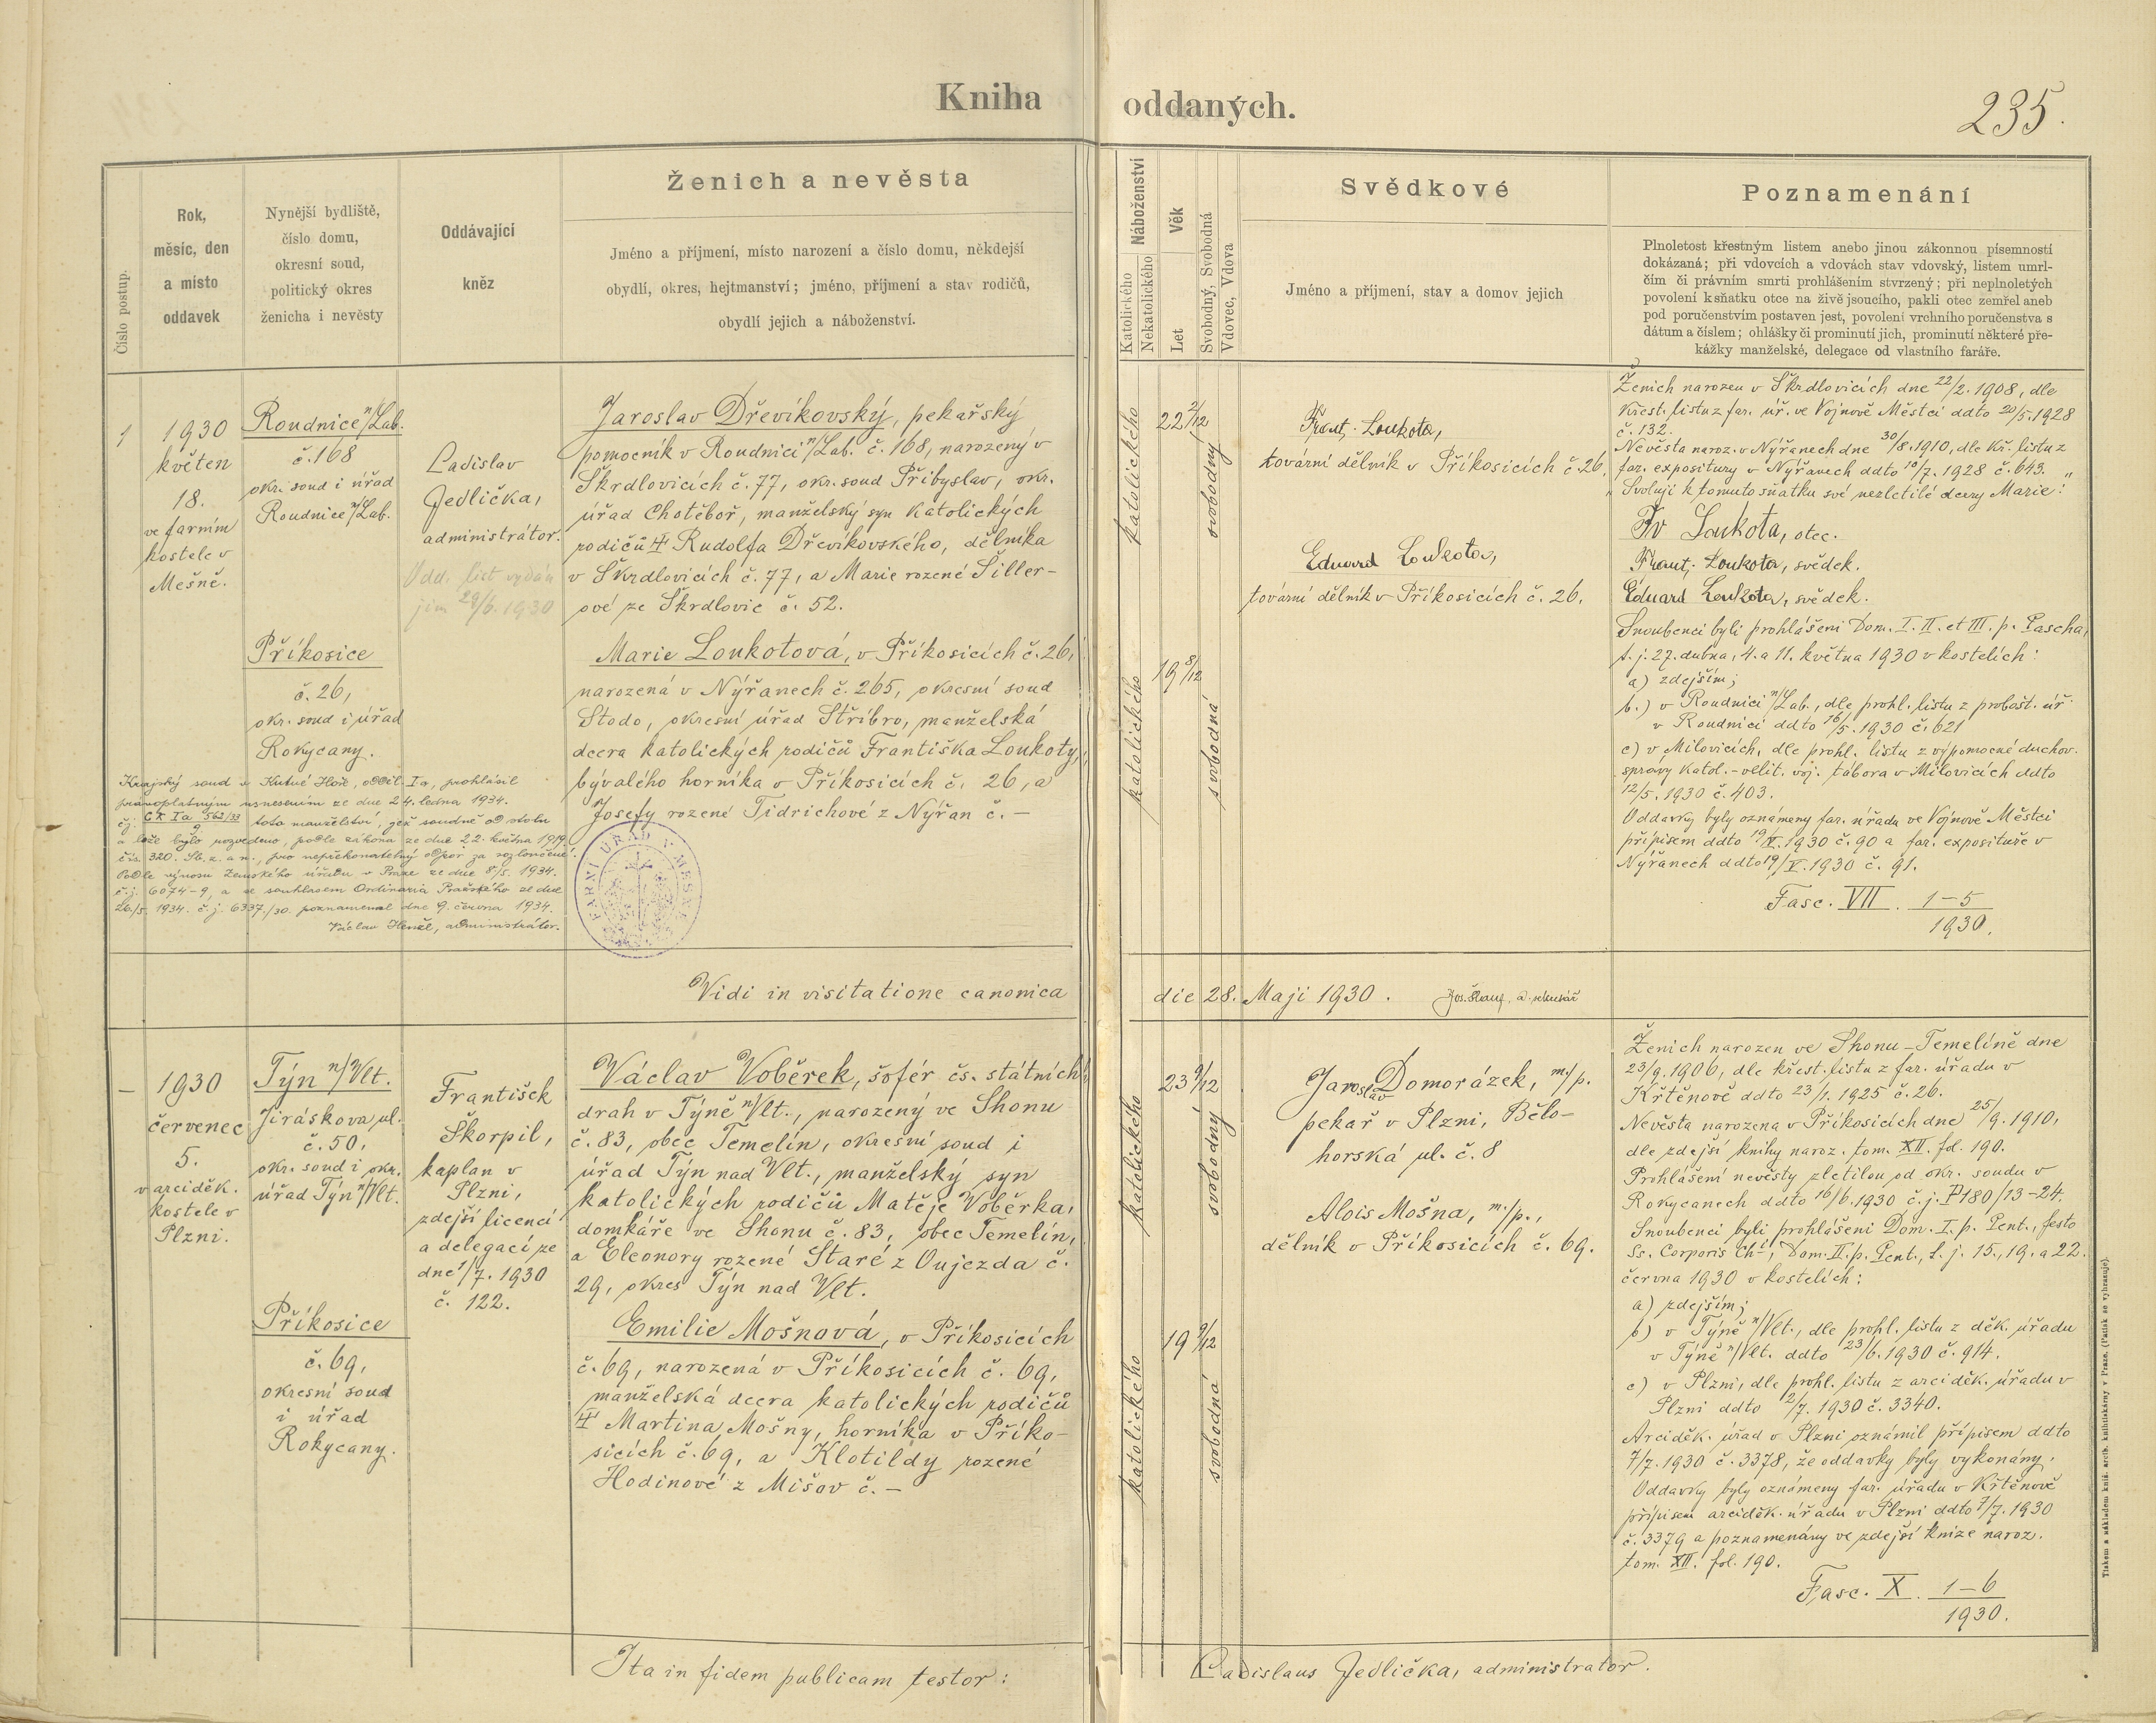 Kniha oddaných.
235.
Číslo postup.
Rok,
měsíc, den
a místo
oddavek
Nynější bydliště,
číslo domu,
okresní soud,
politický okres
ženicha i nevěsty
Oddávající
kněz
Ženich a nevěsta
Jméno a příjmení, místo narození a číslo domu, někdejší
obydlí, okres, hejtmanství; jméno, příjmení a stav rodičů,
obydlí jejich a náboženství.
Náboženství
Katolického
Nekatolického
Věk
Let
Svobodný, Svobodná
Vdovec, Vdova
Svědkové
Jméno a příjmení, stav a domov jejich
Poznamenání
Plnoletost křestným listem anebo jinou zákonnou písemností
dokázaná; při vdovcích a vdovách stav vdovský, listem umrl-
čím či právním smrti prohlášením stvrzený; při neplnoletých
povolení k sňatku otce na živě jsoucího, pakli otec zemřel aneb
pod poručenstvím postaven jest, povolení vrchního poručenstva s
dátum a číslem; ohlášky či prominutí jich, prominutí některé pře-
kážky manželské, delegace od vlastního faráře.
1
1930
květen
18.
ve farním
kostele v
Mešně.
Roudnice n/Lab.
č. 168
okr. soud i úřad
Roudnice n/Lab.
Příkosice
č. 26,
okr. soud i úřad
Rokycany.
Ladislav
Jedlička,
administrátor.
Odd. list vydán
jim 29/6. 1930
Jaroslav Dřevíkovský, pekařský
pomocník v Roudnici n/Lab. č. 168, narozený v
Škrdlovicích č. 77, okr. soud Přibyslav, okr.
úřad Chotěboř, manželský syn katolických
rodičů Rudolfa Dřevíkovského, dělníka
v Škrdlovicích č. 77, a Marie rozené Šiller-
ové ze Škrdlovic č. 52.
Marie Loukotová, v Příkosicích č. 26,
narozená v Nýřanech č. 265, okresní soud
Stodo, okresní úřad Stříbro, manželská
dcera katolických rodičů Františka Loukoty,
bývalého horníka v Příkosicích č. 26, a
Josefy rozené Tidrichové z Nýřan č. —
Krajský soud v Kutné Hoře, odděl. Ia, prohlásil
pravoplatným usnesením ze dne 24. ledna 1934.
čj. Ck Ia 562/33 toto manželství, jež soudně od stolu
9
a lože bylo rozvedeno, podle zákona ze dne 22. května 1919
čís. 320. Sb. z. a n., pro nepřekonatelný odpor za rozloučené.
Podle výnosu Zemského úřadu v Praze ze dne 8/5. 1934.
č.j. 6074-9, a se souhlasem Ordinaria Pražského ze dne
26./5. 1934. č. j. 6337./30. poznamenal dne 9. června 1934.
Václav Henžl, administrátor.
FARNÍ ÚŘAD V MEŠNĚ
katolického
22 2/12
svobodný
katolického
19 8/12
svobodná
Frant. Loukota,
tovární dělník v Příkosicích č. 26.
Eduard Loukota,
tovární dělník v Příkosicích č. 26.
Ženich narozen v Škrdlovicích dne 22/2. 1908, dle
křest. listu z far. úř. ve Vojnově Městci ddto 20/5. 1928
č. 132.
Nevěsta naroz. v Nýřanech dne 30/8. 1910, dle kř. listu z
far. expositury v Nýřanech ddto 10/7. 1928 č. 643.
„Svoluji k tomuto sňatku své nezletilé dcery Marie:"
Fr Loukota, otec.
Frant. Loukota, svědek.
Eduard Loukota, svědek.
Snoubenci byli prohlášeni Dom. I. II. et III. p. Pascha,
t. j. 27. dubna, 4. a 11. května 1930 v kostelích:
a) zdejším;
b.) v Roudnici n/Lab., dle prohl. listu z probošt. úř.
v Roudnici ddto 16/5. 1930 č. 621
c) v Milovicích, dle prohl. listu z výpomocné duchov.
správy katol.-velit. voj. tábora v Milovicích ddto
12/5. 1930 č. 403.
Oddavky byly oznámeny far. úřadu ve Vojnově Městci
přípisem ddto 19/V. 1930 č. 90 a far. expositуře v
Nýřanech ddto 19/V. 1930 č. 91.
Fasc. VII. 1—5
1930.
Vidi in visitatione canonica die 28. Maji 1930.
—
1930
červenec
5.
v arciděk.
kostele v
Plzni.
Týn n/Vlt.
Jiráskova ul.
č. 50,
okr. soud i okr.
úřad Týn n/Vlt.
Příkosice
č. 69,
okresní soud
i úřad
Rokycany.
František
Škorpil,
kaplan v
Plzni,
zdejší licencí
a delegací ze
dne 1/7. 1930
č. 122.
Václav Voběrek, šofér čs. státních
drah v Týně n/Vlt., narozený ve Shonu
č. 83, obec Temelín, okresní soud i
úřad Týn nad Vlt., manželský syn
katolických rodičů Matěje Voběrka,
domkáře ve Shonu č. 83, obec Temelín,
a Eleonory rozené Staré z Oujezda č.
29, okres Týn nad Vlt.
Emilie Mošnová, v Příkosicích
č. 69, narozená v Příkosicích č. 69,
manželská dcera katolických rodičů
Martina Mošny, horníka v Příko-
sicích č. 69, a Klotildy rozené
Hodinové z Mišov č. —
katolického
23 9/12
svobodný
katolického
19 9/12
svobodná
Jaroslav Domorázek, m/p.
pekař v Plzni, Bělo-
horská ul. č. 8
Alois Mošna, m/p.,
dělník v Příkosicích č. 69.
Ženich narozen ve Shonu-Temelíně dne
23/9. 1906, dle křest. listu z far. úřadu v
Křtěnově ddto 23/1. 1925 č. 26.
Nevěsta narozena v Příkosicích dne 25/9. 1910,
dle zdejší knihy naroz. tom. XII. fol. 190.
Prohlášení nevěsty zletilou od okr. soudu v
Rokycanech ddto 16/6. 1930 č. j. P 180/13-24.
Snoubenci byli prohlášeni Dom. I. p. Pent., festo
Ss. Corporis Chi, Dom. II. p. Pent., t. j. 15., 19. a 22.
června 1930 v kostelích:
a) zdejším;
b) v Týně n/Vlt., dle prohl. listu z děk. úřadu
v Týně n/Vlt. ddto 23/6. 1930 č. 914.
c) v Plzni, dle prohl. listu z arciděk. úřadu v
Plzni ddto 2/7. 1930 č. 3340.
Arciděk. úřad v Plzni oznámil přípisem ddto
7/7. 1930 č. 3378, že oddavky byly vykonány.
Oddavky byly oznámeny far. úřadu v Křtěnově
přípisem arciděk. úřadu v Plzni ddto 7/7. 1930
č. 3379 a poznamenány ve zdejší knize naroz.
tom. XII. fol. 190.
Fasc. X. 1—6
1930.
Ita in fidem publicam testor: Ladislaus Jedlička, administrator.
Tiskem a nákladem kníž. arcib. knihtiskárny v Praze. (Patisk se vyhrazuje).